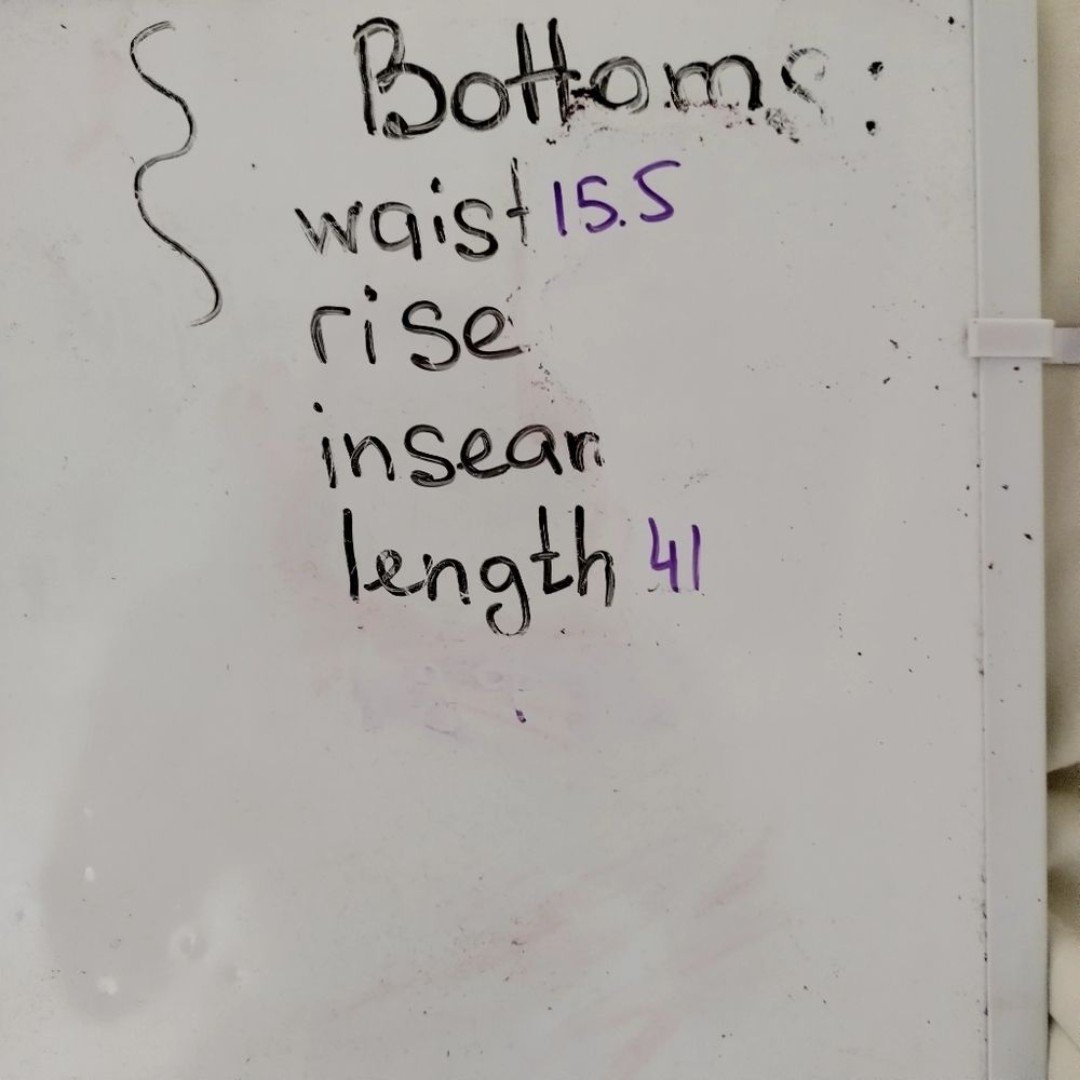 Bottoms:
waist 15.5
rise
insean
length 41